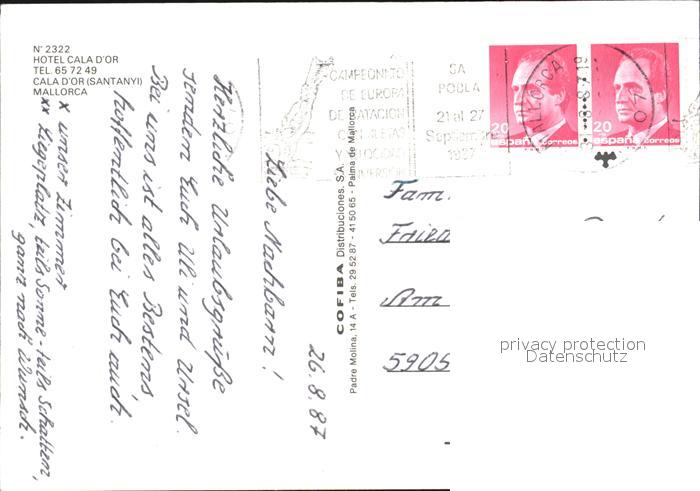 N° 2322
HOTEL CALA D'OR
TEL. 65 72 49
CALA D'OR (SANTANYI)
MALLORCA
26.8.87
Liebe Nachbarn!
Herzliche Urlaubsgrüße
senden Euch Uli und Ursel.
Bei uns ist alles Bestens
hoffentlich bei Euch auch.
x unser Zimmer
xx Liegeplatz, teils Sonne - teils Schatten,
ganz nach Wunsch.
COFIBA Distribuciones, S.A.
Padre Molina, 14 A - Tels. 29 52 87 - 41 50 65 - Palma de Mallorca
CAMPEONATO
DE EUROPA
DE NATACION
SA
POBLA
21 al 27
Septiembre
1987
20
españa correos
20
españa correos
Fam.
Am
5905
privacy protection
Datenschutz